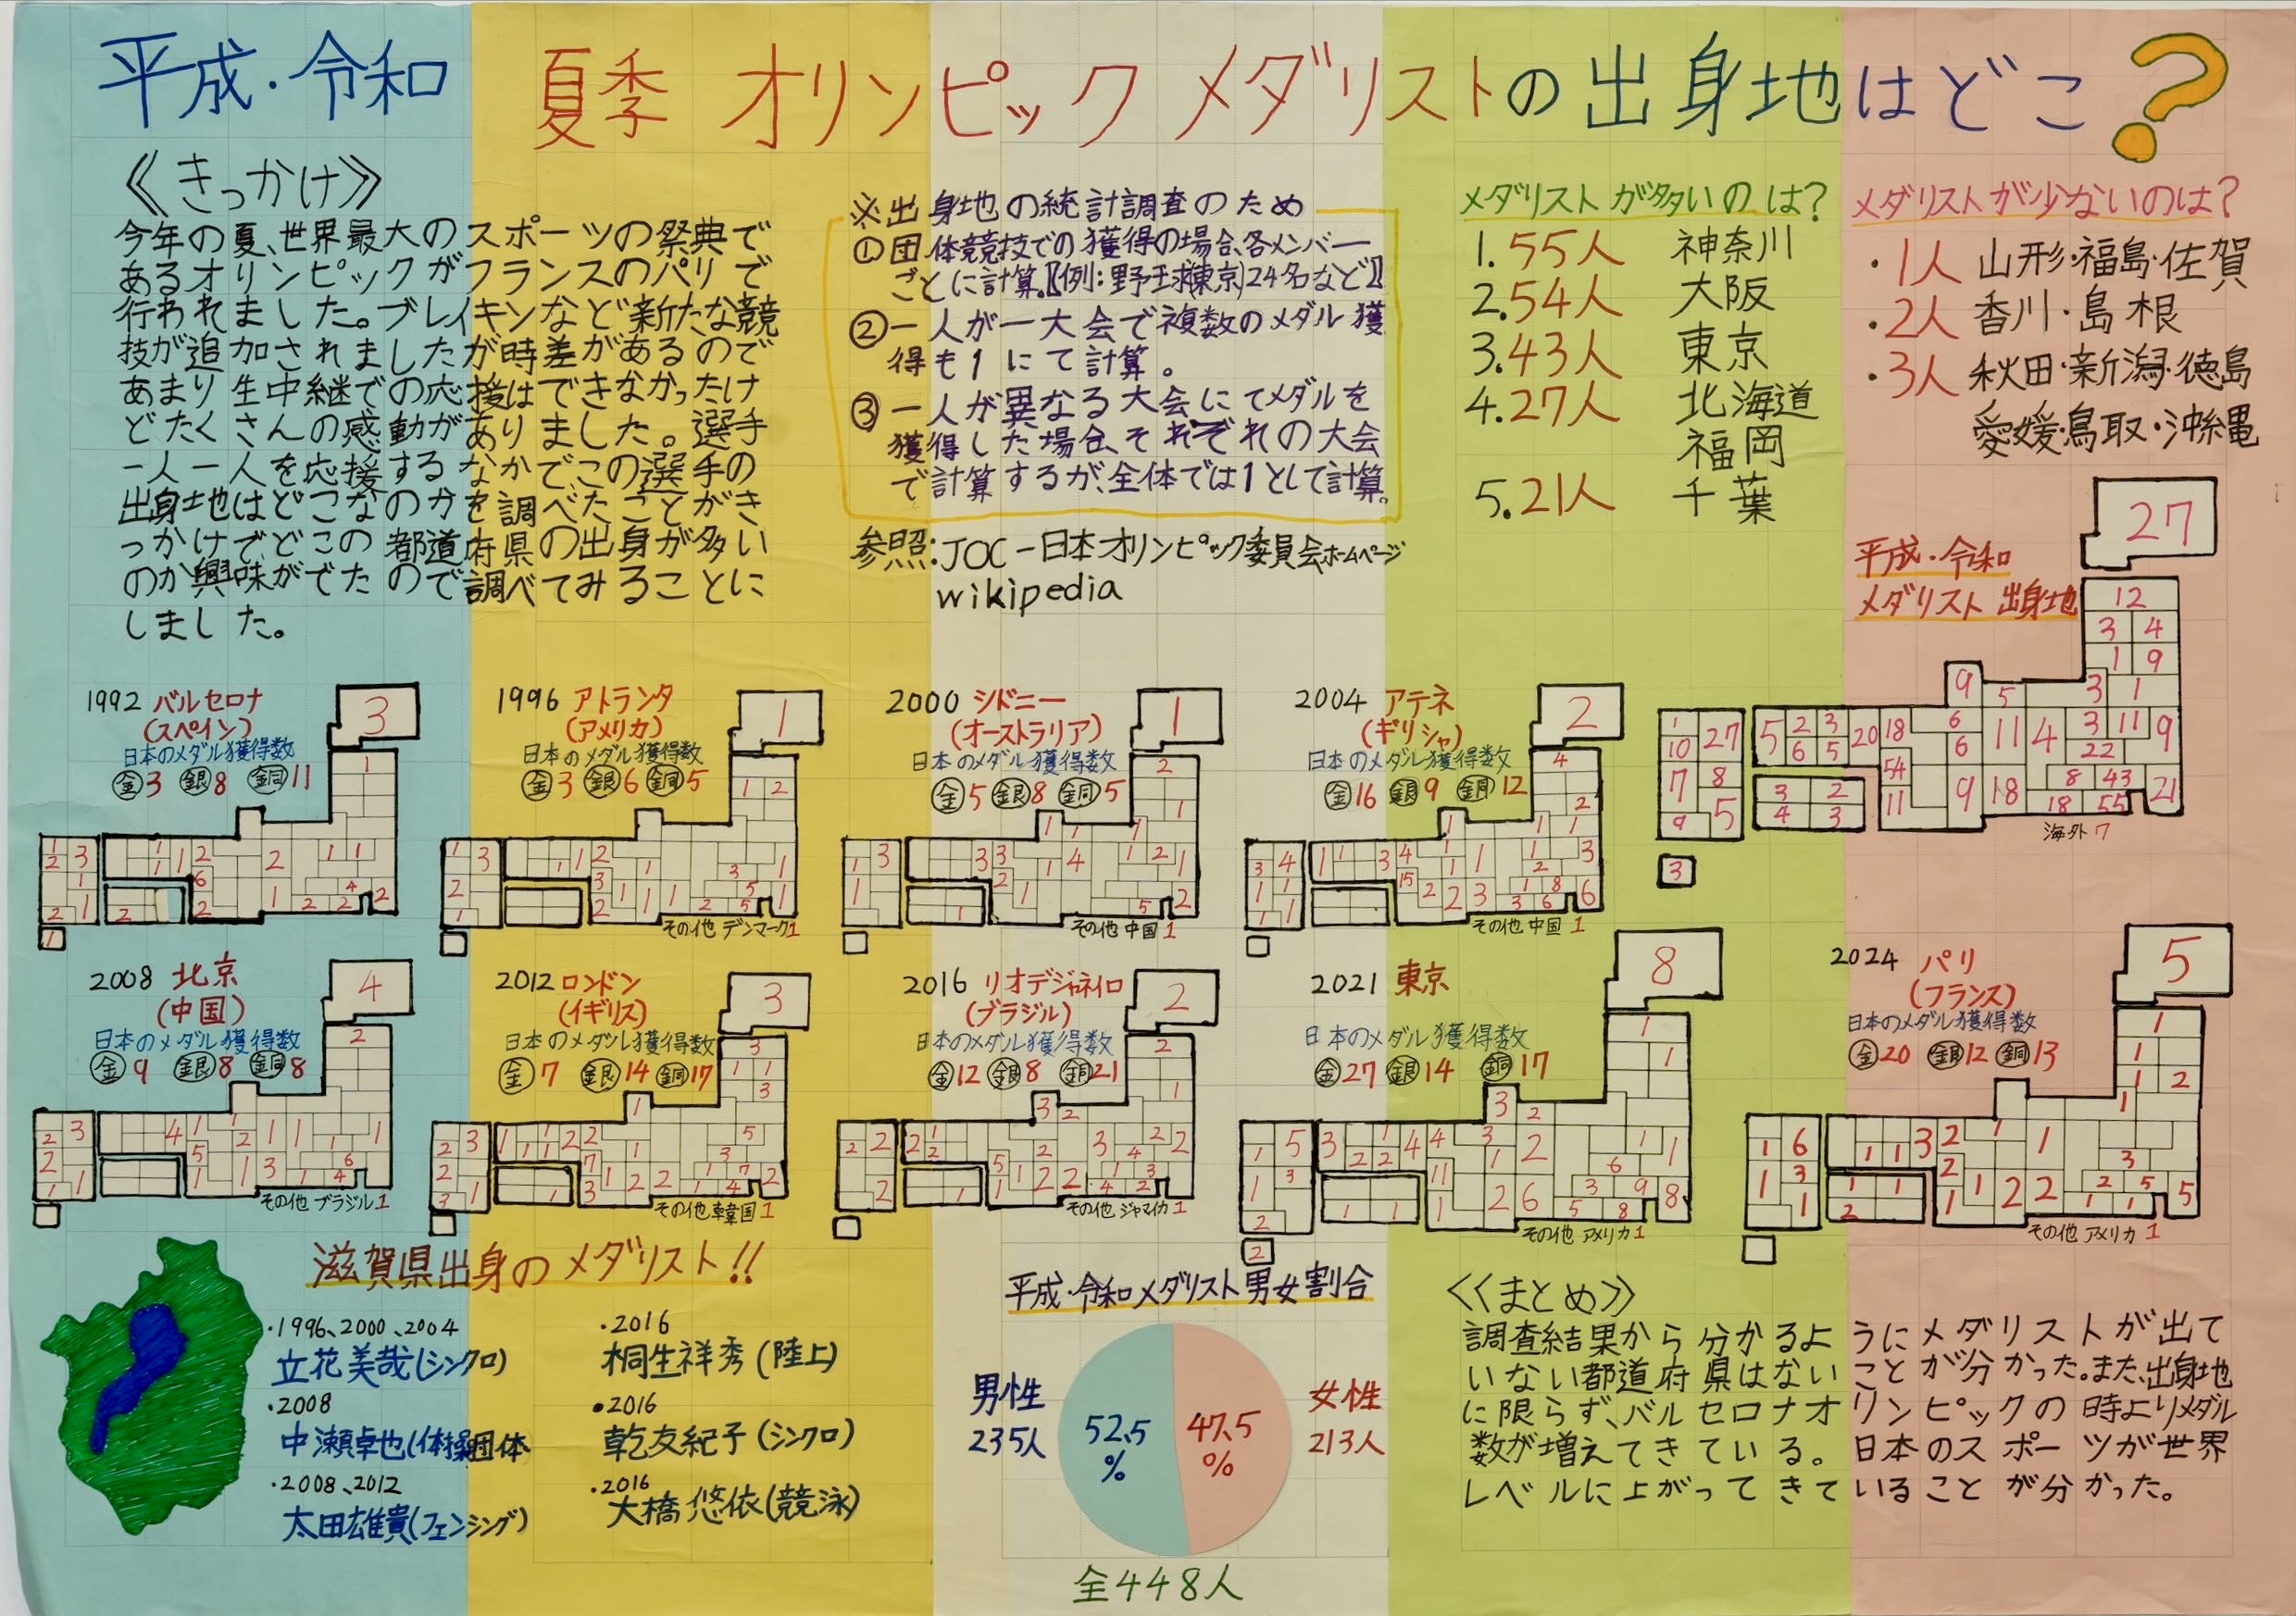 平成・令和 夏季 オリンピック メダリストの出身地はどこ?
《きっかけ》
今年の夏、世界最大のスポーツの祭典で
あるオリンピックがフランスのパリで
行われました。ブレイキンなど新たな競
技が追加されましたが時差があるので
あまり生中継での応援はできなかったけ
どたくさんの感動がありました。選手
一人一人を応援するなかでこの選手の
出身地はどこなのかを調べたことがき
っかけでどこの都道府県の出身が多い
のか興味がでたので調べてみることに
しました。
※出身地の統計調査のため
①団体競技での獲得の場合、各メンバー
ごとに計算。【例:野球(東京)24名など】
②一人が一大会で複数のメダル獲
得も1にて計算。
③一人が異なる大会にてメダルを
獲得した場合、それぞれの大会
で計算するが、全体では1として計算。
参照:JOC-日本オリンピック委員会ホームページ
wikipedia
メダリストが多いのは?
1.55人 神奈川
2.54人 大阪
3.43人 東京
4.27人 北海道
福岡
5.21人 千葉
メダリストが少ないのは?
・1人 山形・福島・佐賀
・2人 香川・島根
・3人 秋田・新潟・徳島
愛媛・鳥取・沖縄
平成・令和
メダリスト 出身地
27
12
3 4
1 9
9 5 3 1
1 27 5 2 3 20 18 6 11 4 3 11 9
10 6 5 6 22
7 8 54 8 43
9 5 3 2 11 9 18 18 55 21
4 3
海外 7
3
1992 バルセロナ
(スペイン)
日本のメダル獲得数
金3 銀8 銅11
3
1996 アトランタ
(アメリカ)
日本のメダル獲得数
金3 銀6 銅5
1
その他 デンマーク1
2000 シドニー
(オーストラリア)
日本のメダル獲得数
金5 銀8 銅5
1
その他 中国1
2004 アテネ
(ギリシャ)
日本のメダル獲得数
金16 銀9 銅12
2
その他 中国 1
2008 北京
(中国)
日本のメダル獲得数
金9 銀8 銅8
4
その他 ブラジル1
2012 ロンドン
(イギリス)
日本のメダル獲得数
金7 銀14 銅17
3
その他 韓国1
2016 リオデジャネイロ
(ブラジル)
日本のメダル獲得数
金12 銀8 銅21
2
その他 ジャマイカ1
2021 東京
日本のメダル獲得数
金27 銀14 銅17
8
その他 アメリカ1
2024 パリ
(フランス)
日本のメダル獲得数
金20 銀12 銅13
5
その他 アメリカ 1
滋賀県出身のメダリスト!!
・1996、2000、2004
立花美哉(シンクロ)
・2008
中瀬卓也(体操団体
・2008、2012
太田雄貴(フェンシング)
・2016
桐生祥秀(陸上)
・2016
乾友紀子(シンクロ)
・2016
大橋悠依(競泳)
平成・令和メダリスト男女割合
男性
235人
52.5
%
47.5
%
女性
213人
全448人
《まとめ》
調査結果から分かるようにメダリストが出て
いない都道府県はないことが分かった。また、出身地
に限らず、バルセロナオリンピックの時よりメダル
数が増えてきている。日本のスポーツが世界
レベルに上がってきていることが分かった。